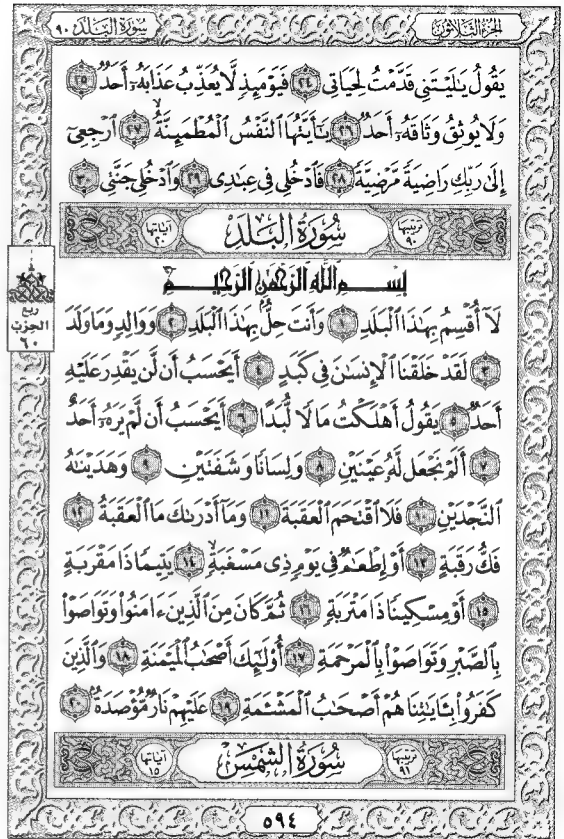 سُورَةُ البَلَدِ ٩٠
الجُزءُ الثَّلَاثُونَ
يَقُولُ يَٰلَيْتَنِى قَدَّمْتُ لِحَيَاتِى ٢٤ فَيَوْمَئِذٍ لَّا يُعَذِّبُ عَذَابَهُۥٓ أَحَدٌ ٢٥
وَلَا يُوثِقُ وَثَاقَهُۥٓ أَحَدٌ ٢٦ يَٰٓأَيَّتُهَا ٱلنَّفْسُ ٱلْمُطْمَئِنَّةُ ٢٧ ٱرْجِعِىٓ
إِلَىٰ رَبِّكِ رَاضِيَةً مَّرْضِيَّةً ٢٨ فَٱدْخُلِى فِى عِبَٰدِى ٢٩ وَٱدْخُلِى جَنَّتِى ٣٠
ترتيبها ٩٠ سُورَةُ البَلَدِ آياتها ٢٠
بِسْمِ ٱللَّهِ ٱلرَّحْمَٰنِ ٱلرَّحِيمِ
لَآ أُقْسِمُ بِهَٰذَا ٱلْبَلَدِ ١ وَأَنتَ حِلٌّۢ بِهَٰذَا ٱلْبَلَدِ ٢ وَوَالِدٍ وَمَا وَلَدَ
٣ لَقَدْ خَلَقْنَا ٱلْإِنسَٰنَ فِى كَبَدٍ ٤ أَيَحْسَبُ أَن لَّن يَقْدِرَ عَلَيْهِ
أَحَدٌ ٥ يَقُولُ أَهْلَكْتُ مَالًا لُّبَدًا ٦ أَيَحْسَبُ أَن لَّمْ يَرَهُۥٓ أَحَدٌ
٧ أَلَمْ نَجْعَل لَّهُۥ عَيْنَيْنِ ٨ وَلِسَانًا وَشَفَتَيْنِ ٩ وَهَدَيْنَٰهُ
ٱلنَّجْدَيْنِ ١٠ فَلَا ٱقْتَحَمَ ٱلْعَقَبَةَ ١١ وَمَآ أَدْرَىٰكَ مَا ٱلْعَقَبَةُ ١٢
فَكُّ رَقَبَةٍ ١٣ أَوْ إِطْعَٰمٌ فِى يَوْمٍ ذِى مَسْغَبَةٍ ١٤ يَتِيمًا ذَا مَقْرَبَةٍ
١٥ أَوْ مِسْكِينًا ذَا مَتْرَبَةٍ ١٦ ثُمَّ كَانَ مِنَ ٱلَّذِينَ ءَامَنُوا۟ وَتَوَاصَوْا۟
بِٱلصَّبْرِ وَتَوَاصَوْا۟ بِٱلْمَرْحَمَةِ ١٧ أُو۟لَٰٓئِكَ أَصْحَٰبُ ٱلْمَيْمَنَةِ ١٨ وَٱلَّذِينَ
كَفَرُوا۟ بِـَٔايَٰتِنَا هُمْ أَصْحَٰبُ ٱلْمَشْـَٔمَةِ ١٩ عَلَيْهِمْ نَارٌ مُّؤْصَدَةٌۢ ٢٠
ترتيبها ٩١ سُورَةُ الشَّمْسِ آياتها ١٥
ربع
الحزب
٦٠
٥٩٤